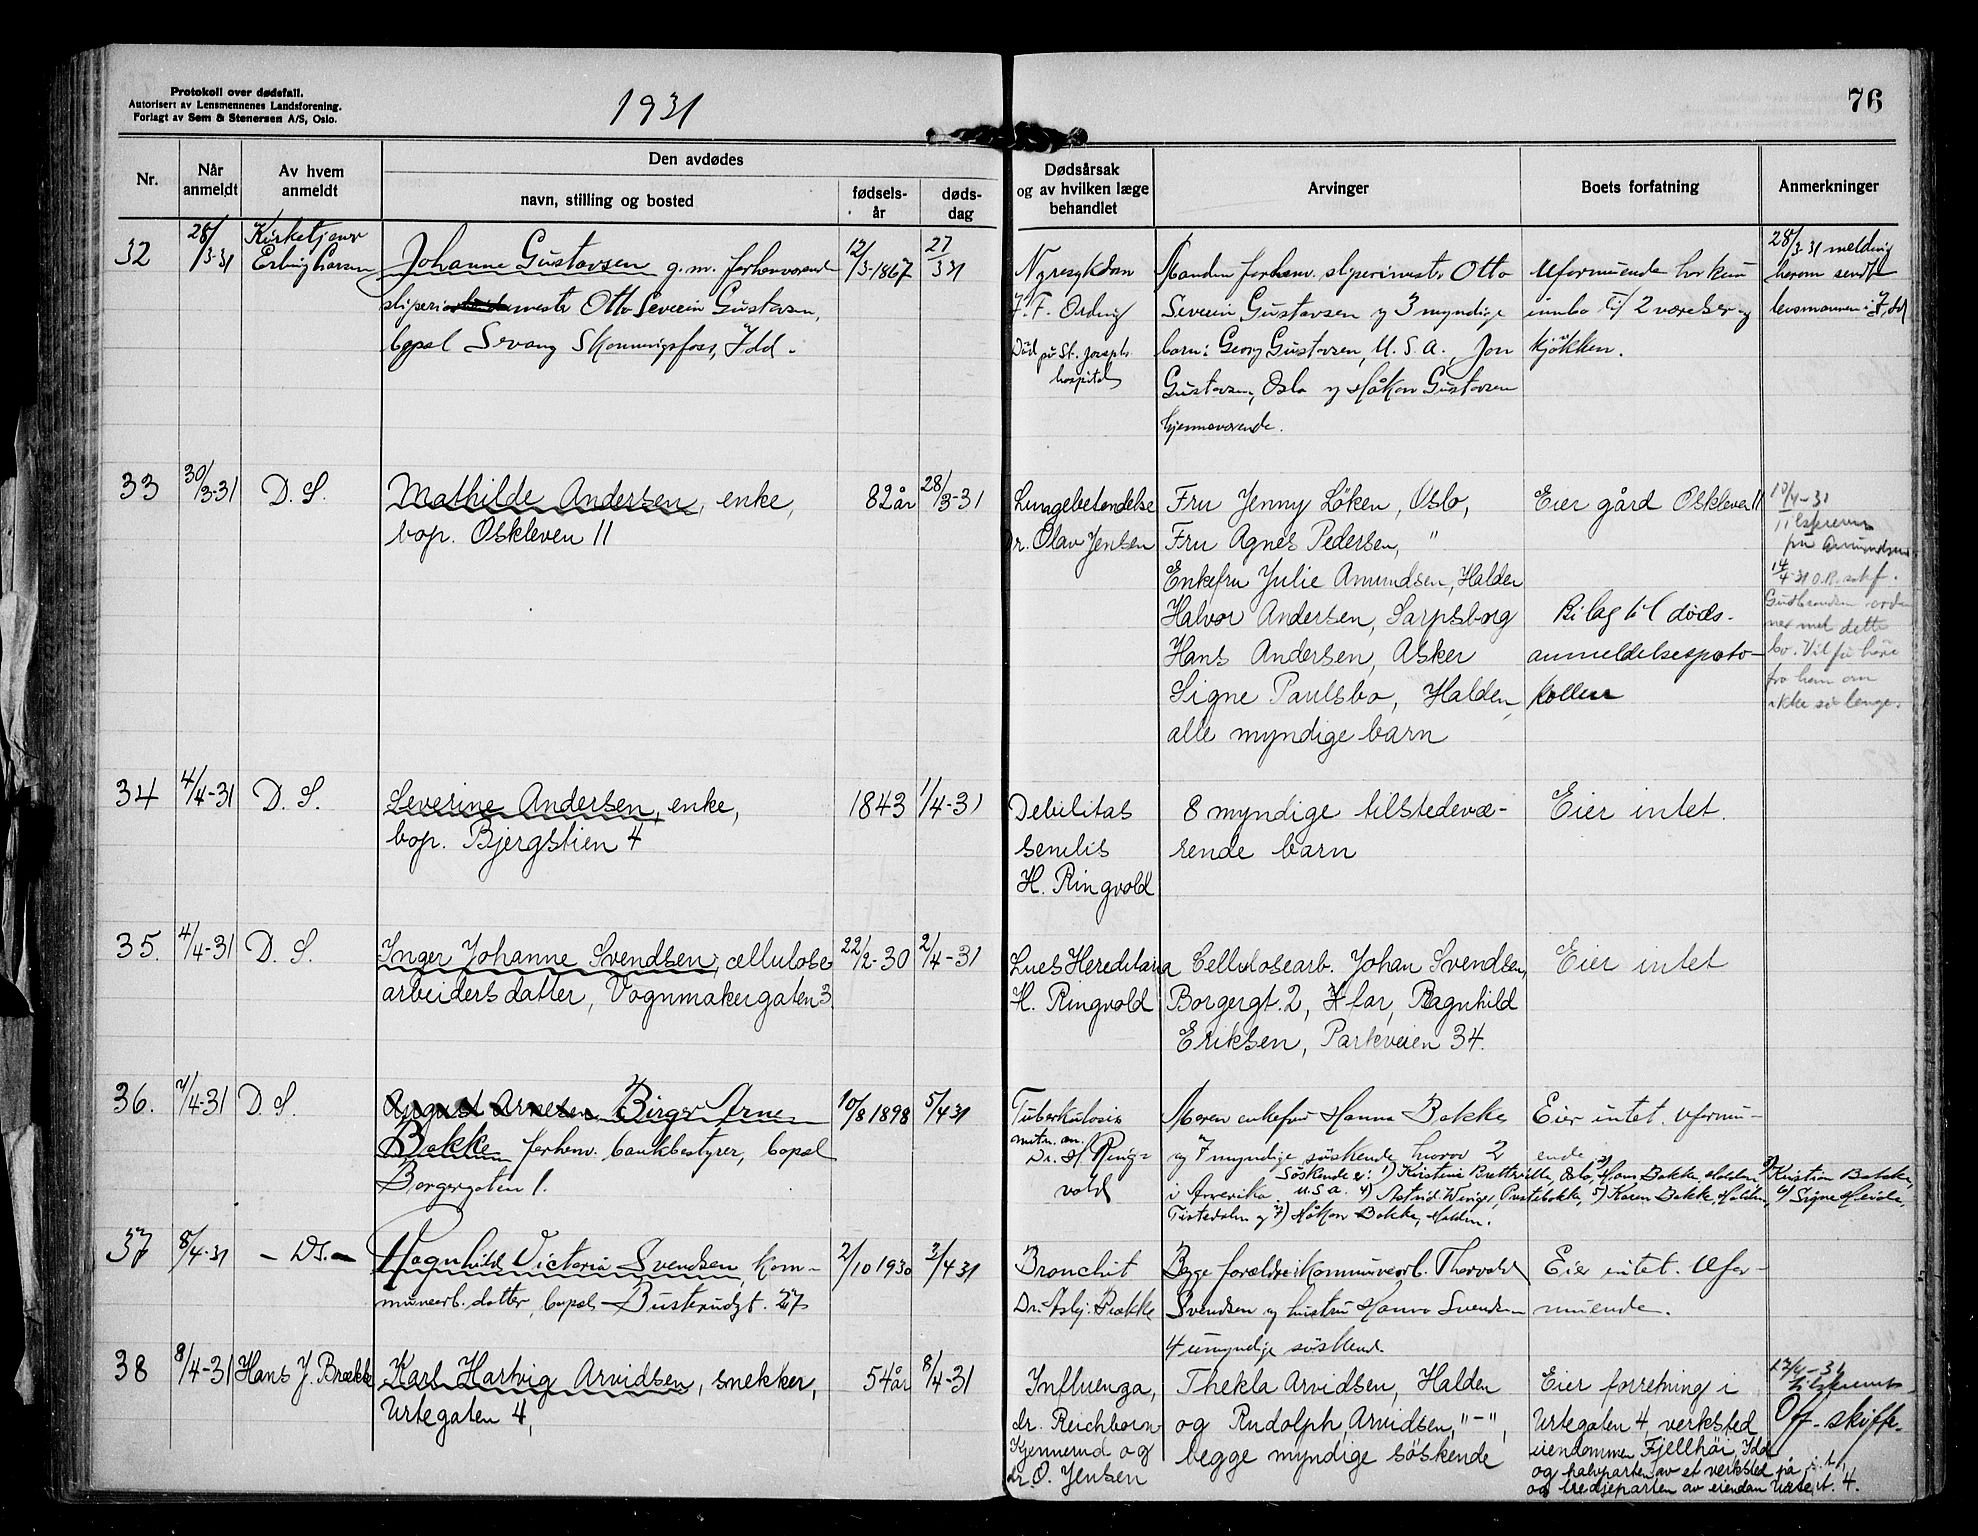 Protokoll over dødsfall.
Autorisert av Lensmennenes Landsforening.
Forlagt av Sem & Stenersen A/S, Oslo.
1931
76
Nr.
Når anmeldt
Av hvem anmeldt
Den avdødes
navn, stilling og bosted
fødsels-år
døds-dag
Dødsårsak og av hvilken læge behandlet
Arvinger
Boets forfatning
Anmerkninger
32
28/3-31
Kirketjener
Erling Larsen
Johanne Gustavsen g.m. forhenværende
sliperimester Otto Severin Gustavsen,
bopel Sevang Skonningsfoss, Idd.
12/3-1867
27/3 31
Nyresykdom
F. Ording
Död på St. Josephs
hospital
Manden forhenv. sliperimester Otto
Severin Gustavsen og 3 myndige
barn: Georg Gustavsen, U.S.A., Jon
Gustavsen, Oslo og Håkon Gustavsen
hjemmeværende.
Uformuende har kun
innbo til 2 værelser og
kjøkken.
28/3 31 melding
herom sendt
lensmannen i Idd
33
30/3-31
D. S.
Mathilde Andersen, enke,
bop. Oskleven 11
82 år
28/3-31
Lungebetendelse
dr. Olav Jensen
Fru Jenny Löken, Oslo,
Fru Agnes Pedersen, "
Enkefru Julie Amundsen, Halden
Halvor Andersen, Sarpsborg
Hans Andersen, Asker
Signe Paulsbo, Halden,
alle myndige barn
Eier gård Oskleven 11
Bilag til døds-
anmeldelsesproto-
kollen
10/4-31
tilskreven
fru Amundsen.
14/4-31 O.R.sakf.
Gudbrandsen ord
ner med dette
bo. Vil få høre
fra ham om
ikke så lenge.
34
4/4-31
D. S.
Severine Andersen, enke,
bop. Bjergstien 4
1843
1/4-31
Debilitas
senilis
H. Ringvold
8 myndige tilstedevæ-
rende barn
Eier intet.
35.
4/4-31
D. S.
Inger Johanne Svendsen, cellulose
arbeiders datter, Vognmakergaten 3
22/2-30
2/4-31
Lues Hereditaria
H. Ringvold
Cellulosearb. Johan Svendsen,
Borgergt. 2, Far, Ragnhild
Eriksen, Parkveien 34.
Eier intet
36.
7/4-31
D. S.
August Arnesen Birger Arne
Bakke forhenv. bankbestyrer, bopel
Borgergaten 1.
10/8 1898
5/4 31
Tuberkulosis
Dr. H. Ring-
vold
Moren enkefru Hanna Bakke
og 7 myndige søskende hvorav 2
i Amerika. Søskende er: 1) Kirstine Brettville, Oslo, 2) Hans Bakke, Halden, 3) Kristian Bakke,
U.S.A. 4) Astrid Wenge, Prestebakke, 5) Karen Bakke, Halden, 6) Signe Heide,
Tistedalen og 7) Håkon Bakke, Halden.
Eier intet. Uformu-
ende
37
8/4-31
- Ds. -
Ragnhild Victoria Svendsen, kom-
munearb. datter, bopel Busterudgt. 27
2/10 1930
3/4 31
Bronchit
Dr. Asbj. Brække
Begge foreldre: Kommunearb. Thorvald
Svendsen og hustru Hanna Svendsen
4 umyndige søskend
Eier intet. Ufor-
muende.
38
8/4-31
Hans J. Brække
Karl Hartvig Arvidsen, snekker,
Urtegaten 4,
54 år
8/4-31
Influenza,
dr. Reichborn-
Kjennerud og
dr. O. Jensen
Thekla Arvidsen, Halden
og Rudolph Arvidsen, "-",
begge myndige søskende
Eier forretning i
Urtegaten 4, verksted
eiendommen Fjellhöi, Idd
og halvparten av et verksted på
og tredjeparten av eiendom Urtegt. 4.
13/4-31
tilskrevet
Off. skifte.